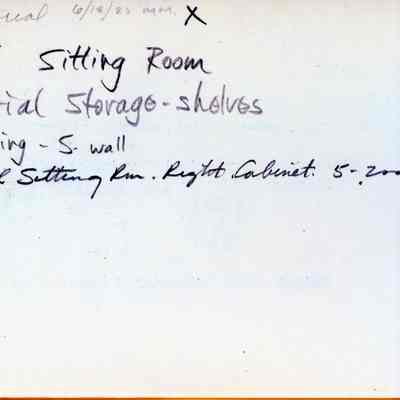 6/18/83 X
Sitting Room
ial Storage-shelves
ing - S. wall
Sitting Rm. Right Cabinet. 5-200